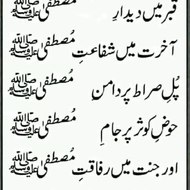 قبر میں دیدارِ مُصطفٰی ﷺ
آخرت میں شفاعتِ مُصطفٰی ﷺ
پُلِ صراط پر دامنِ مُصطفٰی ﷺ
حوضِ کوثر پر جامِ مُصطفٰی ﷺ
اور جنت میں رفاقتِ مُصطفٰی ﷺ